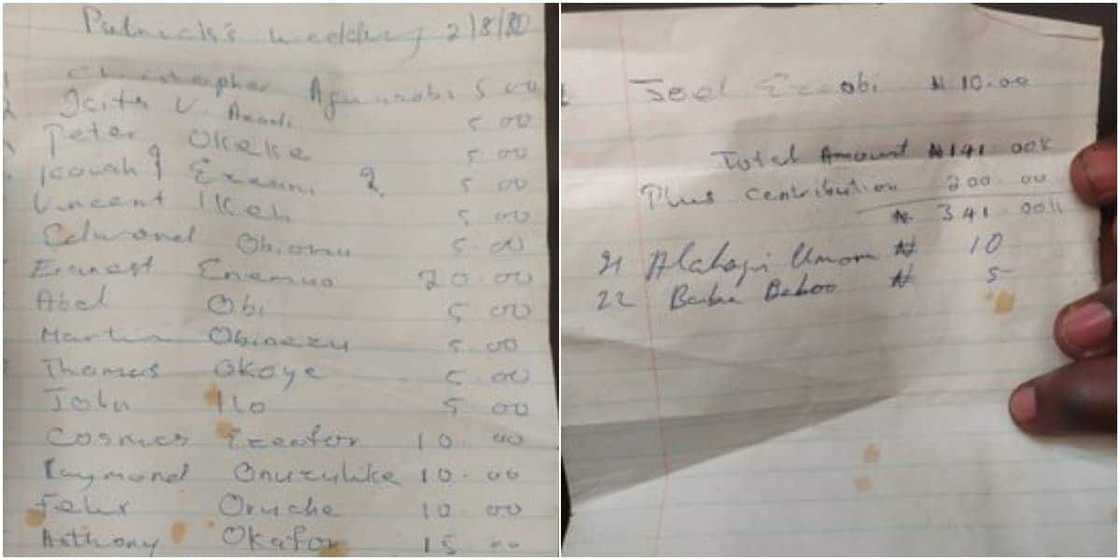 Patrick's wedding 2/8/80
Christopher 5 00
V. 5 00
Peter Okeke 5.00
5 00
Vincent Ikeh 5 00
Edmond 5.00
Ernest Enemuo 20.00
Abel Obi 5 00
Martin Obinezu 5.00
Thomas Okoye 5.00
John Ilo 5 00
Cosmas Ezeafor 10. 00
Raymond Onuzulike 10.00
Felix Oruche 10 00
Anthony Okafor 15 00
Joel obi ₦ 10.00
Total Amount ₦ 141.00k
Plus contribution 200.00
₦ 341.00k
21 Alahaji ₦ 10
22 ₦ 5